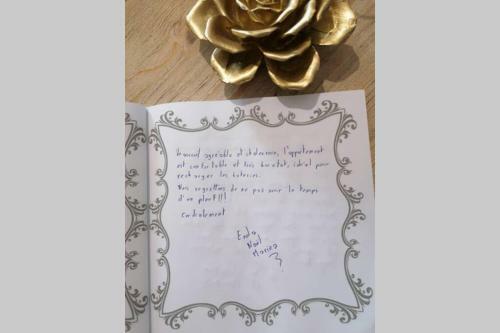 Un accueil agréable et chaleureux, l'appartement
est confortable et très bien état, idéal pour
recharger les batteries.
Nous regrettons de ne pas avoir le temps
d'en plus!!!
Cordialement
Enzo
Noël